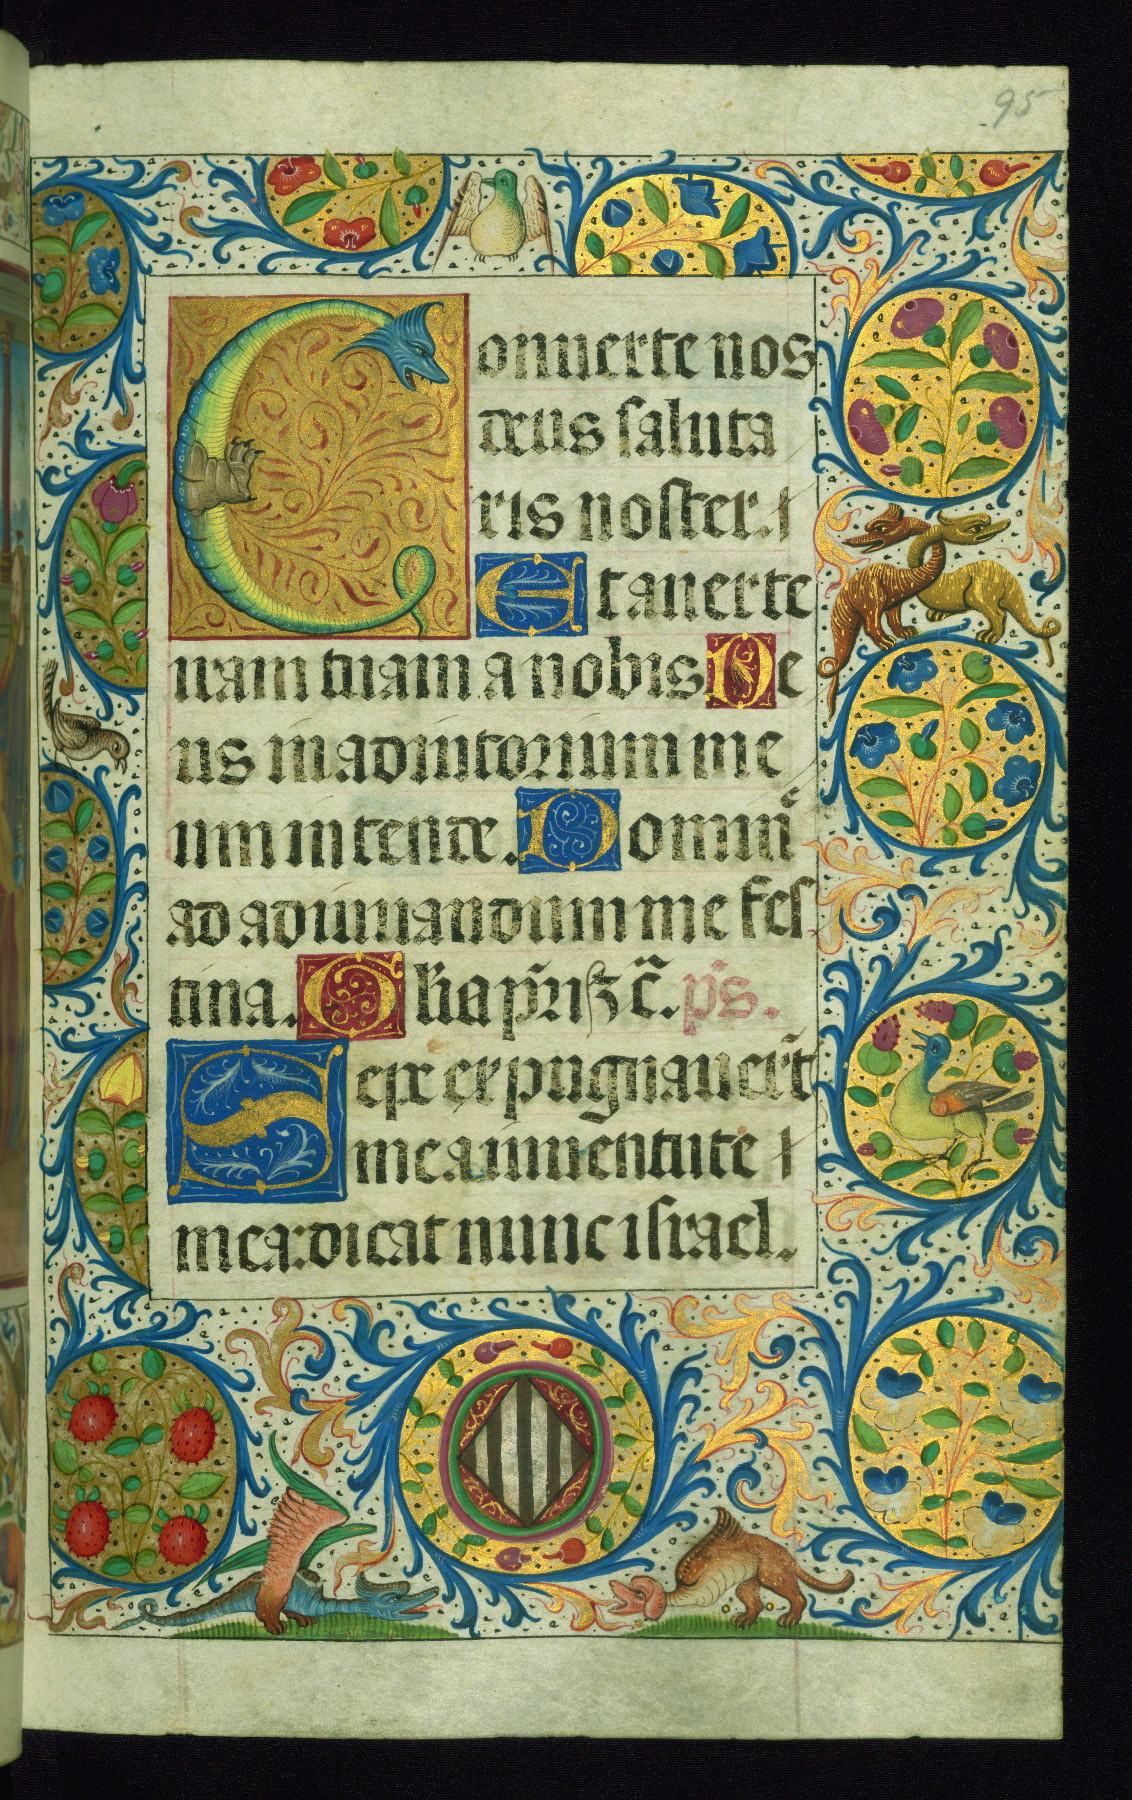 95
Conuerte nos
deus saluta
ris noster.
Et auerte
iram tuam a nobis De
us in adiutorium me
um intende. Domine
ad adiuuandum me fes
tina. Glia pri
ps.
Sepe expugnauerūt
me a iuuentute
mea: dicat nunc israel.